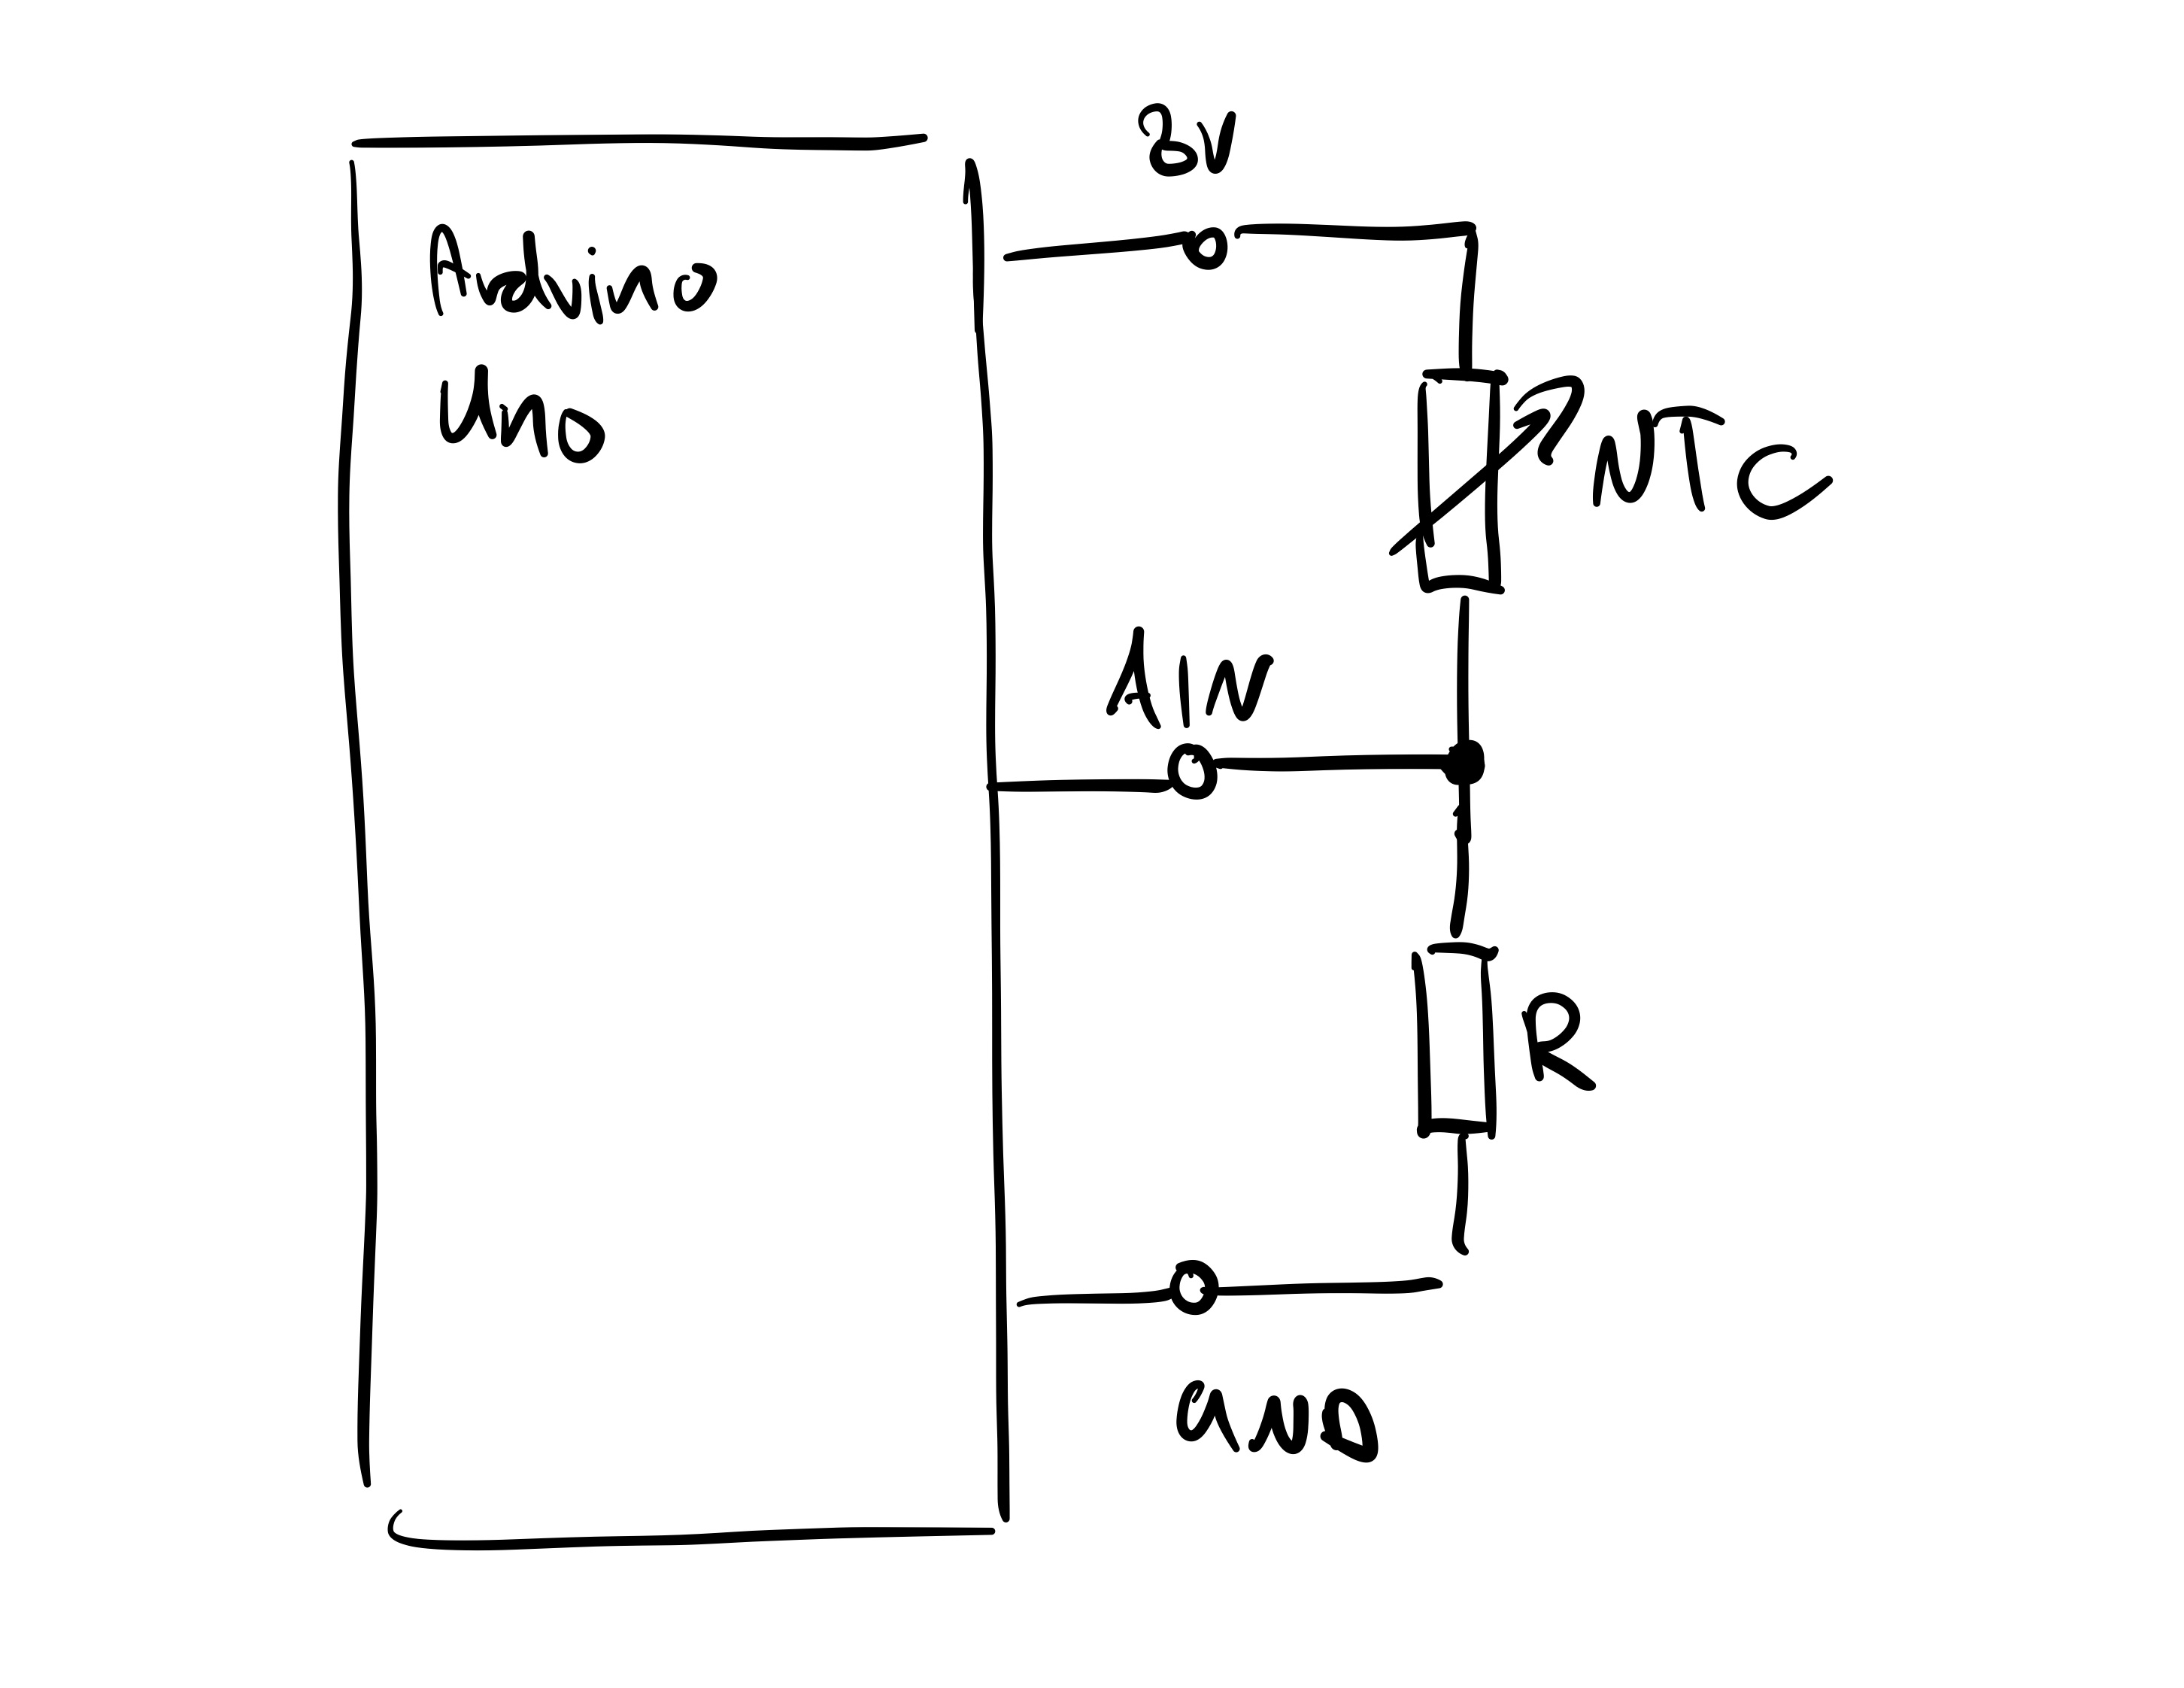 3V
Arduino
Uno
NTC
AIN
R
GND